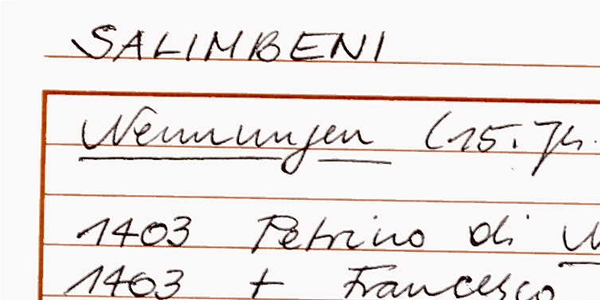 SALIMBENI
Nennungen (15. Jh.
1403 Petrino di
1403 + Francesco